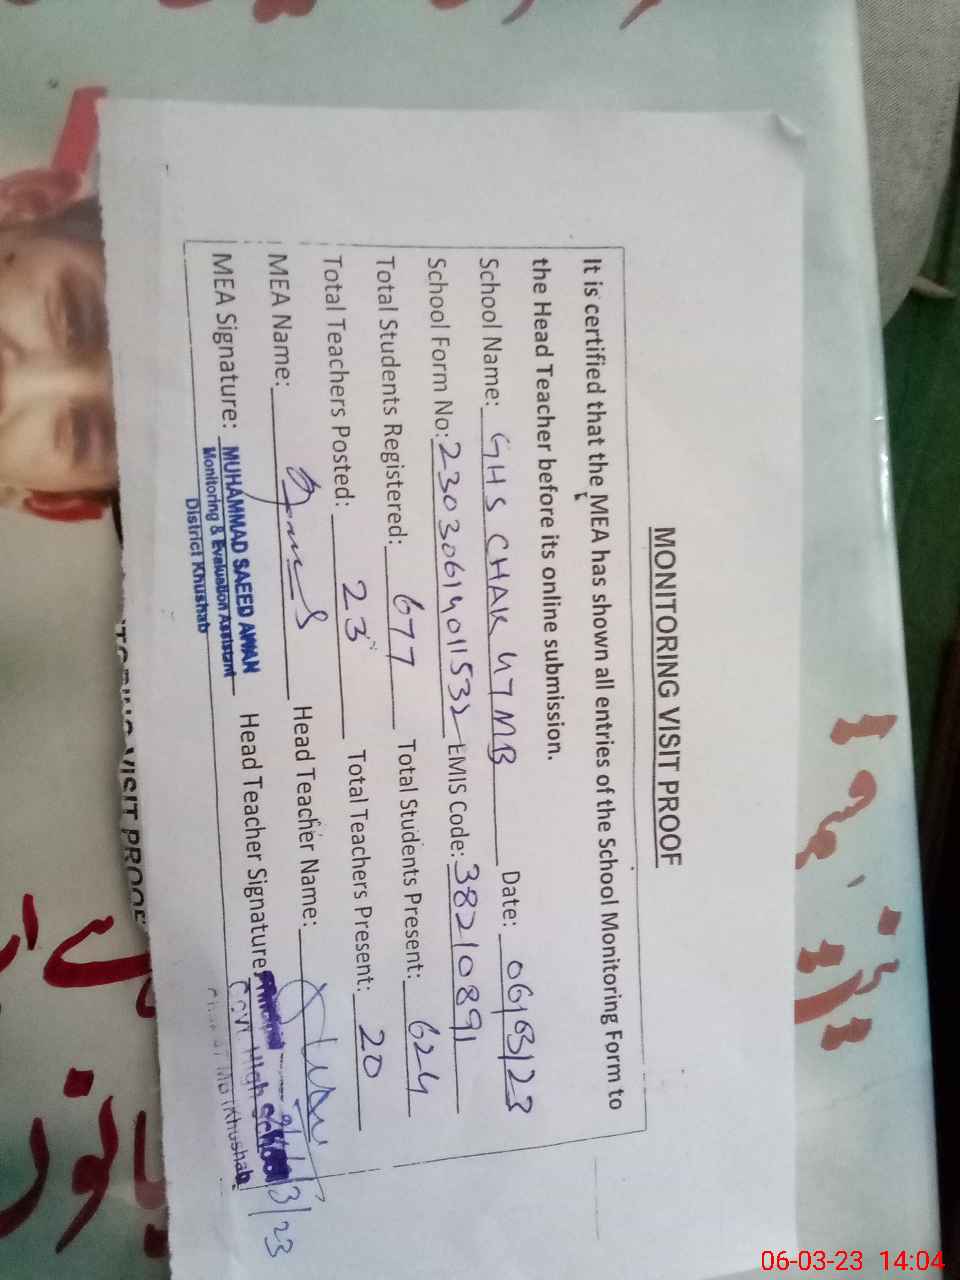 MONITORING VISIT PROOF
It is certified that the MEA has shown all entries of the School Monitoring Form to
the Head Teacher before its online submission.
School Name: GHS CHAK 47 MB Date: 06/03/23
School Form No: 2303061401532 EMIS Code: 38210891
Total Students Registered: 677 Total Students Present: 624
Total Teachers Posted: 23 Total Teachers Present: 20
MEA Name: Head Teacher Name:
MEA Signature: MUHAMMAD SAEED AWAN Head Teacher Signature: Principal
Monitoring & Evaluation Assistant Govt High School
District Khushab Khushab
/3/23
VISIT PROOF
06-03-23 14:04